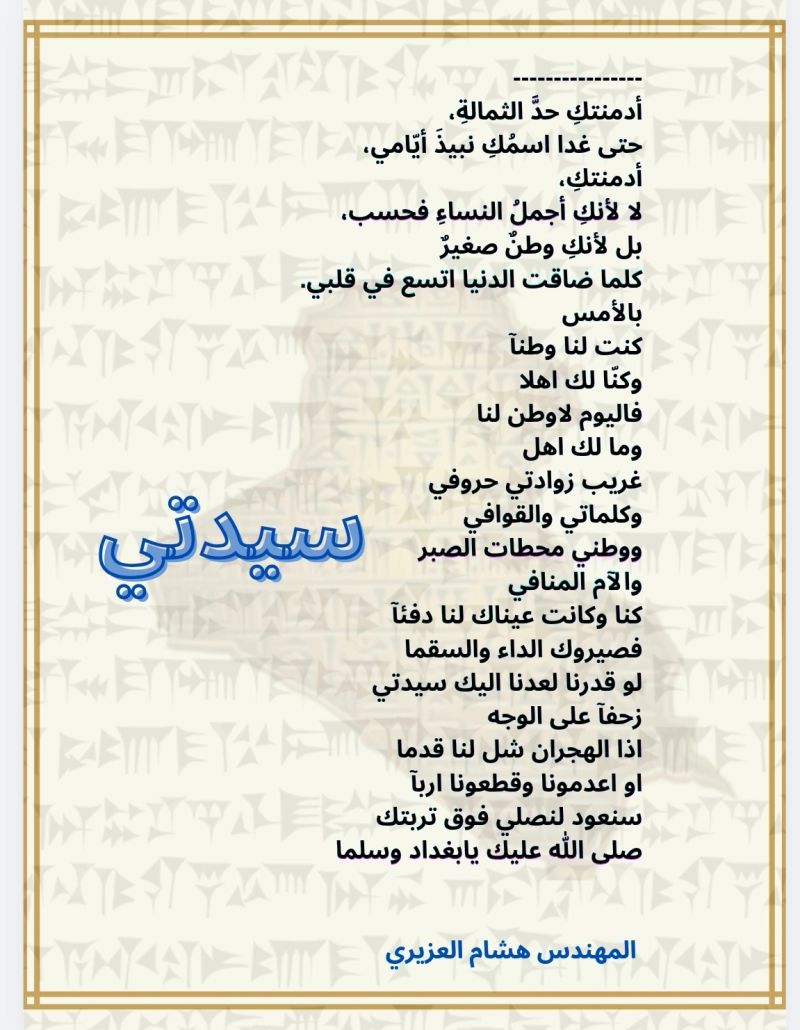 ----------------
أدمنتكِ حدَّ الثمالةِ،
حتى غدا اسمُكِ نبيذَ أيّامي،
أدمنتكِ،
لا لأنكِ أجملُ النساءِ فحسب،
بل لأنكِ وطنٌ صغيرٌ
كلما ضاقت الدنيا اتسع في قلبي.
بالأمس
كنت لنا وطنآ
وكنّا لك اهلا
فاليوم لاوطن لنا
وما لك اهل
غريب زوادتي حروفي
وكلماتي والقوافي
ووطني محطات الصبر
والآم المنافي
كنا وكانت عيناك لنا دفئآ
فصيروك الداء والسقما
لو قدرنا لعدنا اليك سيدتي
زحفآ على الوجه
اذا الهجران شل لنا قدما
او اعدمونا وقطعونا اربآ
سنعود لنصلي فوق تربتك
صلى الله عليك يابغداد وسلما
سيدتي
المهندس هشام العزيري